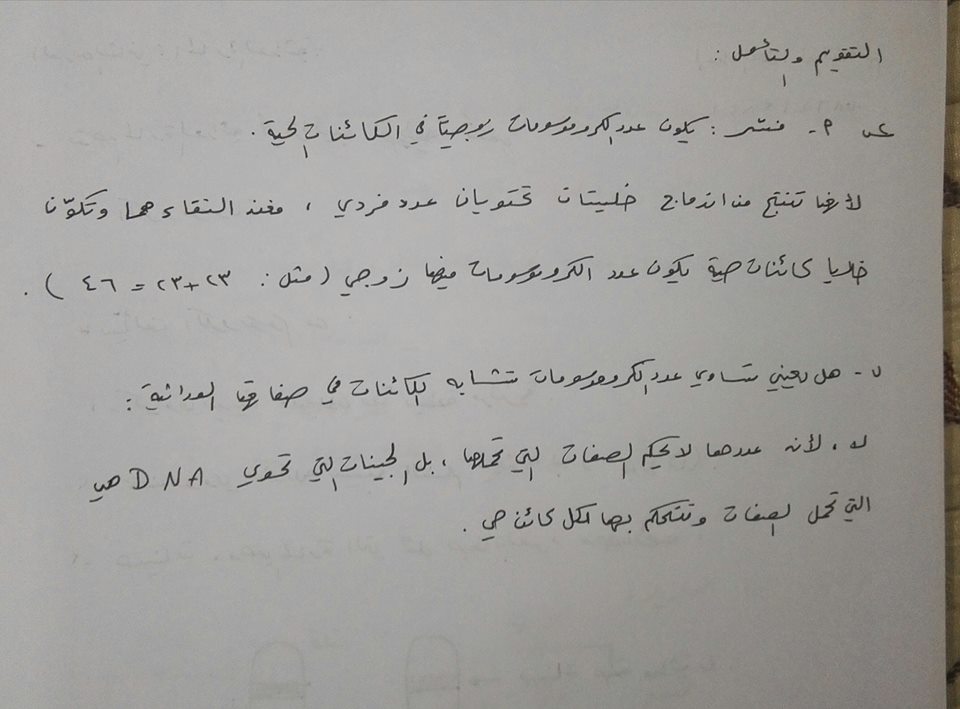 التقويم والتأمل :
س٢ ٩- فسّر : يكون عدد الكروموسومات زوجيًا في الكائنات الحية .
لأنها تنتج من اندماج خليتات تحتويان عدد فردي ، فعند التقاءهما وتكوّن
خلايا كائنات حية يكون عدد الكروموسومات فيها زوجي ( مثل : ٢٣+٢٣ = ٤٦ ) .
ں - هل يعني تساوي عدد الكروموسومات تشابه الكائنات في صفاتها الوراثية :
لا ، لأنه عددها لا يحكم الصفات التي تحملها ، بل الجينات التي تحوي DNA هي
التي تحمل الصفات وتتحكم بها لكل كائن حي .